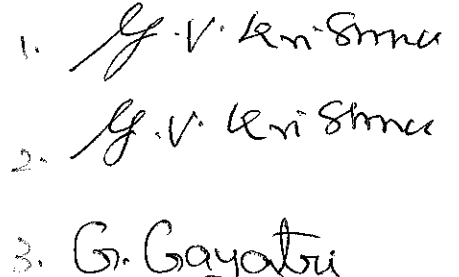 1. G.V. Krishna
2. G.V. Krishna
3. G. Gayatri